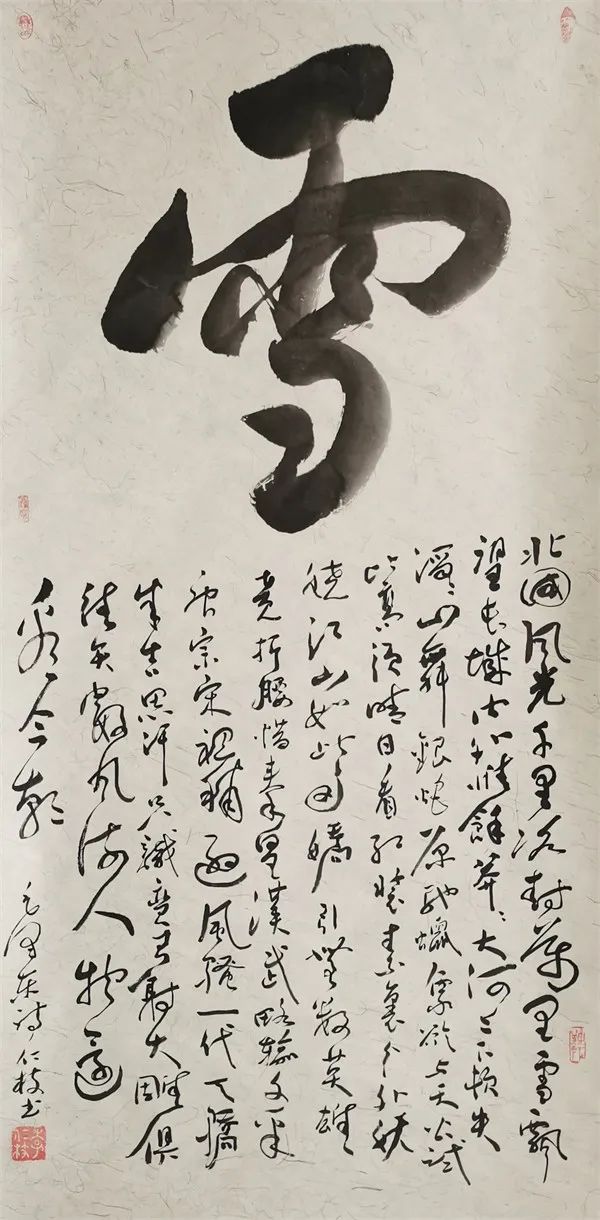 雪
北國风光千里冰封萬里雪飄
望长城内外惟餘莽〻大河上下頓失
滔〻山舞銀蛇原馳蠟象欲与天公試
比高須晴日看红装素裹分外妖
嬈江山如此多嬌引無数英雄
竞折腰惜秦皇漢武略輸文采
唐宗宋祖稍逊風騷一代天驕
成吉思汗只識彎弓射大雕俱
往矣數风流人物還
看今朝
毛泽东诗仁枝书
李仁枝